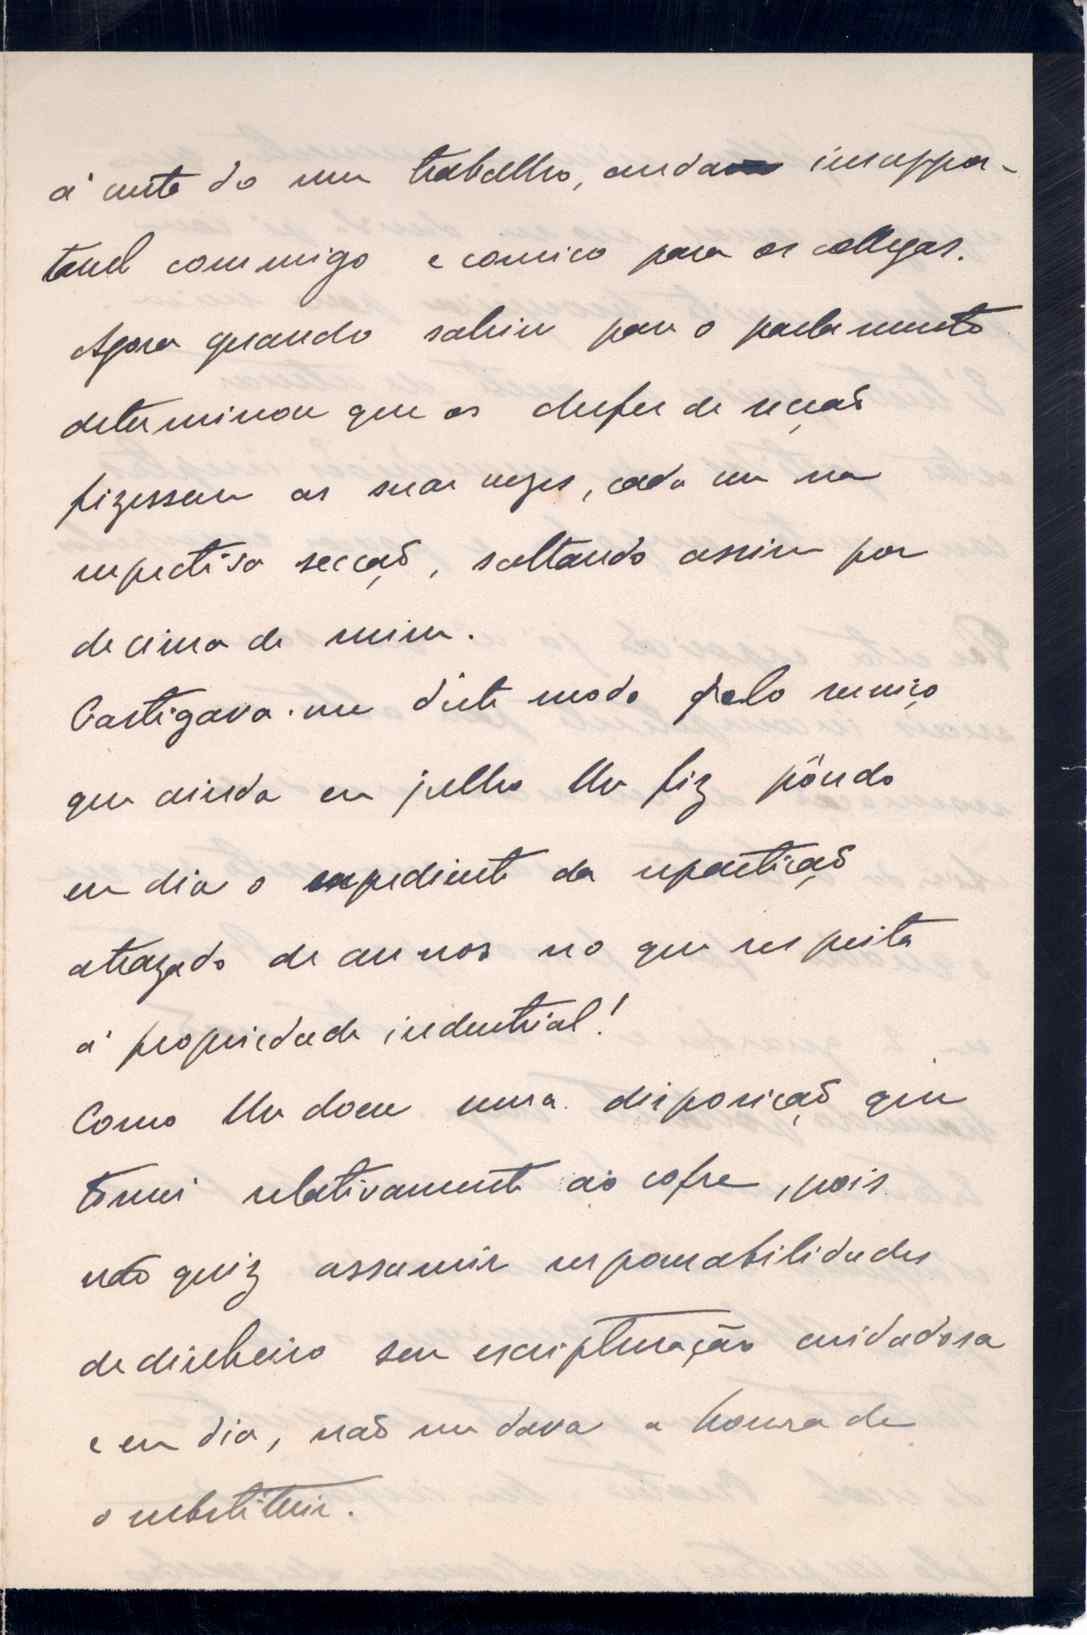 á custa do meu trabalho, anda insuppor-
tavel commigo e comico para os collegas.
Agora quando sahiu para o parlamento
determinou que os chefes de secção
fizessem as suas vezes, cada um na
respectiva secção, saltando assim por
de cima de mim.
Castigava-me d'este modo pelo serviço
que ainda em julho lhe fiz pôndo
em dia o expediente da repartição
atrazado de annos no que respeita
á propriedade industrial!
Como lhe doeu uma disposição que
tomei relativamente ao cofre, pois
não quiz assumir responsabilidades
de dinheiro sem escripturação cuidadosa
e em dia, não me dava a honra de
o substituir.